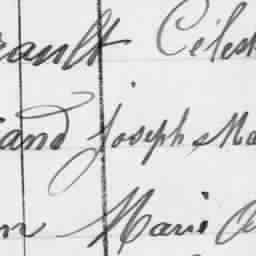 rault Célest
iand Joseph Ma
n Marie